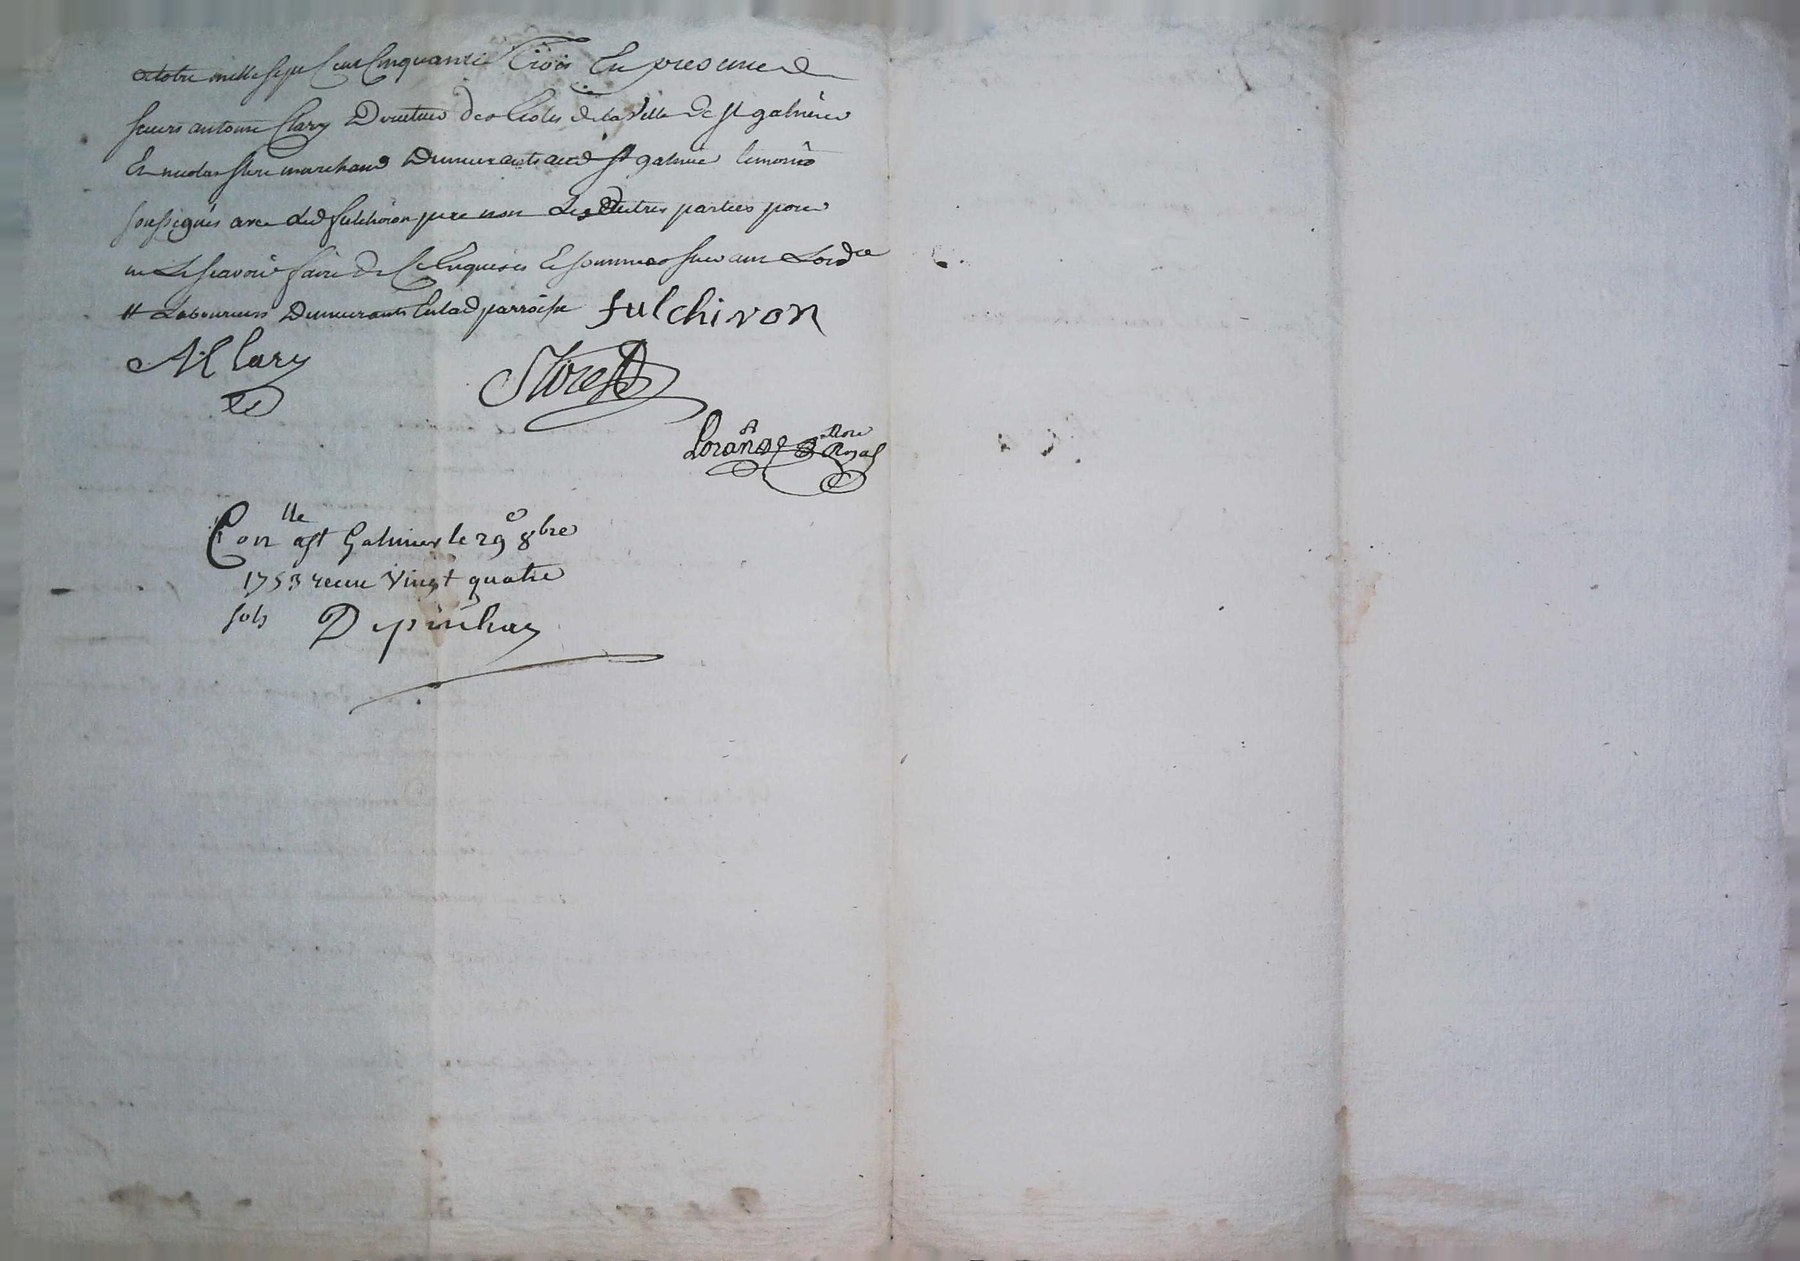 octobre mille sept Cent Cinquante Trois En presence de
sieurs antoine Clary Directeur des Ecoles de la Ville de st galmier
Et nicolas store marchand Demeurants aud st galmier temoins
soussignés avec led fulchiron pere non Les Autres parties pour
ne Le scavoir faire de Ce Enquises Et sommees suivant Lordce
# Laboureurs Demeurants En lad parroisse fulchiron
A Clary
Store
Lorande Nore Royal
Conlle a st Galmier le 29e 8bre
1753 recu Vingt quatre
sols Depinhay